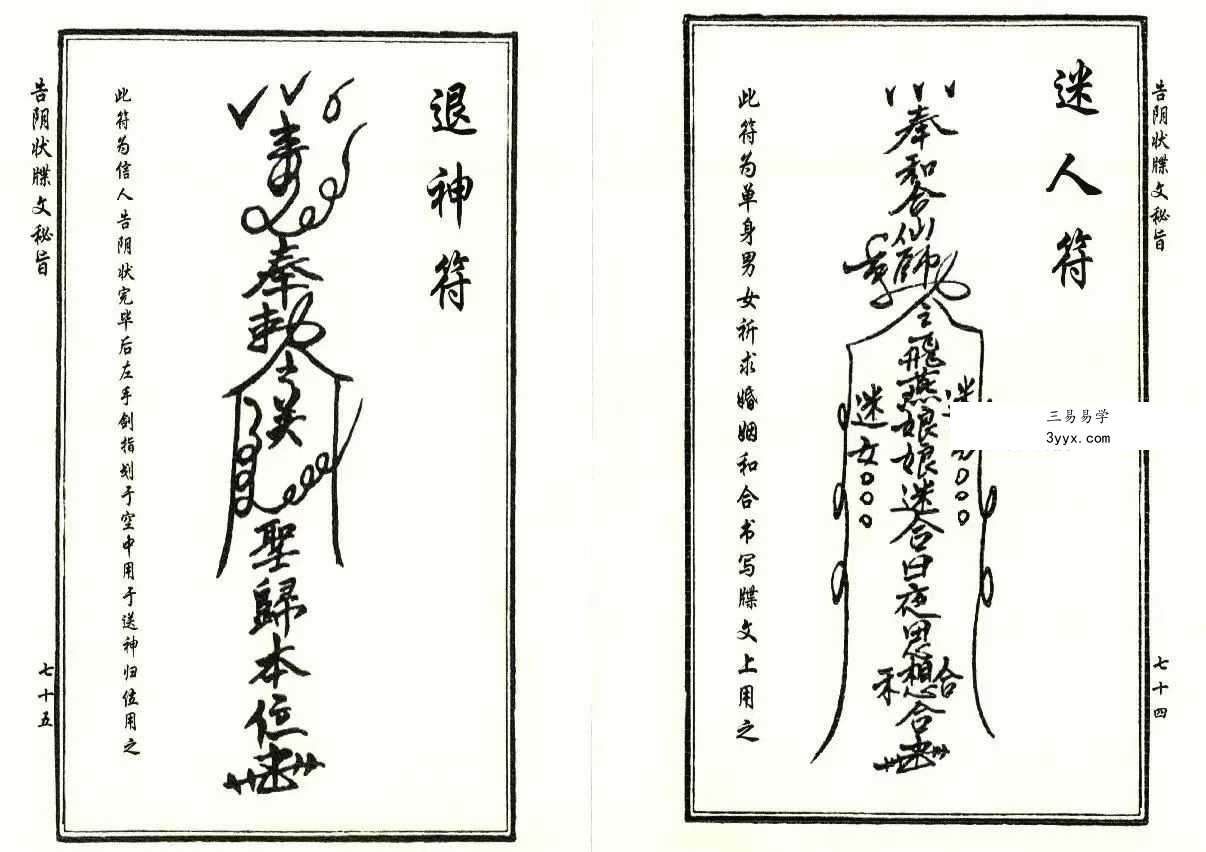 告阴状牒文秘旨
迷人符
奉和合仙師
令飛燕娘娘迷合日夜思想合
迷女
和合
此符为单身男女祈求婚姻和合书写牒文上用之
七十四
三易易学
3yyx.com
退神符
奉勅令
聖歸本位
此符为信人告阴状完毕后左手剑指划于空中用于送神归位用之
告阴状牒文秘旨
七十五